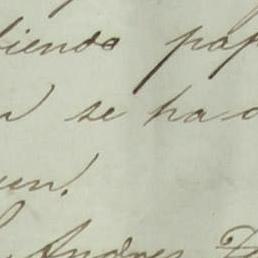 biendo pap
n se ha
uen.
Andres D